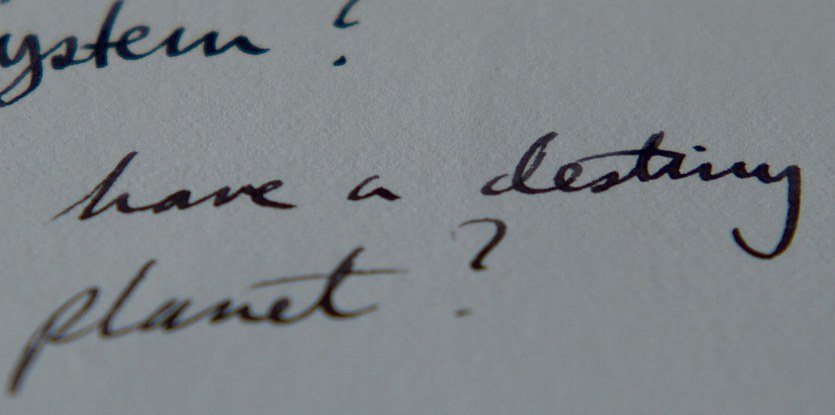 ystem ?
have a destiny
planet ?